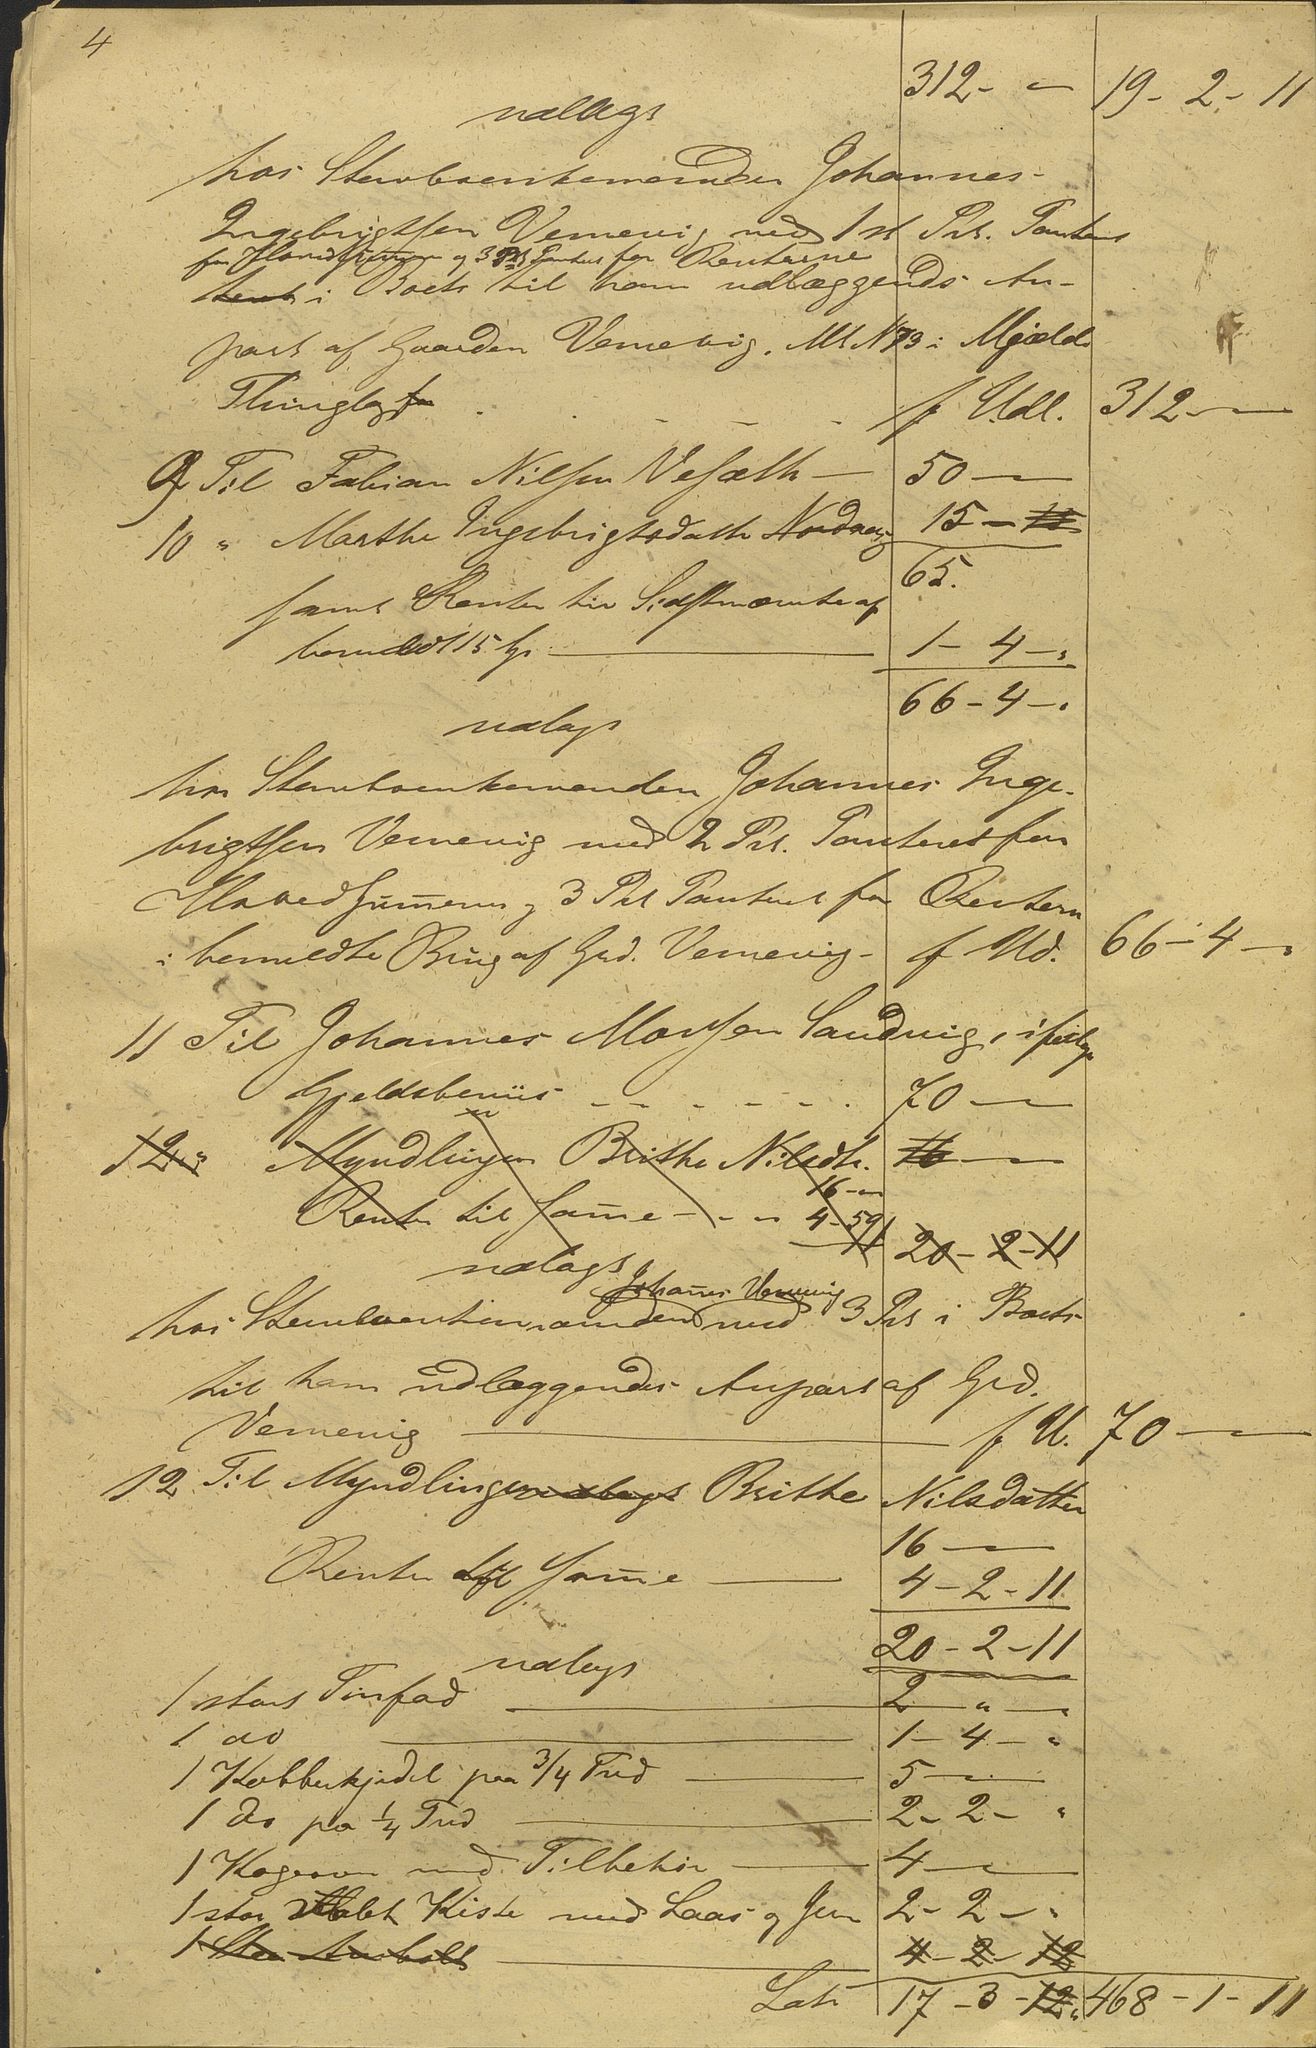 4
312 - " - 19 - 2 - 11
udlagt
hos Stervboenkemanden Johannes
Ingebrigtsen Vernevig med 1st Prt. Panteret
for Hovedsummen og 3 Prt Panteret for Renterne
i Boets til ham udlæggende An-
part af Gaarden Vernevig, Mt N 73 i Mjelde
Thinglag . . . . f Udl. 312 -
9 Til Fabian Nilsen Vesæth — 50 —
10 " Marthe Ingebrigtsdatter Nordvig 15 -
65.
samt Renter til Sidstnævnte af
bemeldt 15 Sp. — 1 - 4 - "
66 - 4 - "
udlagt
hos Stervboenkemanden Johannes Inge-
brigtsen Vernevig med 2 Prt. Panteret for
Hovedsummen og 3 Prt Panteret for Renterne
i bemeldte Brug af Grd. Vernevig - f Ud. 66 - 4 - "
11 Til Johannes Monsen Sandvig, ifølge
Gjeldsbeviis - - - - - - 70 —
12 " Myndlingen Brithe Nilsdtr. 16 —
16 -
Renter til samme - - - 4 - 59
20 - 2 - 11
udlagt
Johannes Vernevig
hos Stervboenkemanden med 3 Prt i Boets
til ham udlæggende Anpart af Grd.
Vernevig — f U. 70 —
12 Til Myndlingen Brithe Nilsdatter
16 —
Renter af samme — 4 - 2 - 11
20 - 2 - 11
udlagt
1 stort Tinfad — 2 " "
1 do — 1 - 4 - "
1 Kobberkjedel paa 3/4 Tnd — 5 —
1 do pa 1/4 Tnd — 2 - 2 - "
1 Kogeovn med Tilbehør — 4 —
1 stor malet Kiste med Laas og Jern 2 - 2 - "
1 Sten Ambolt — 4 - 2 - 12
Lats 17 - 3 - 12 " 468 - 1 - 11